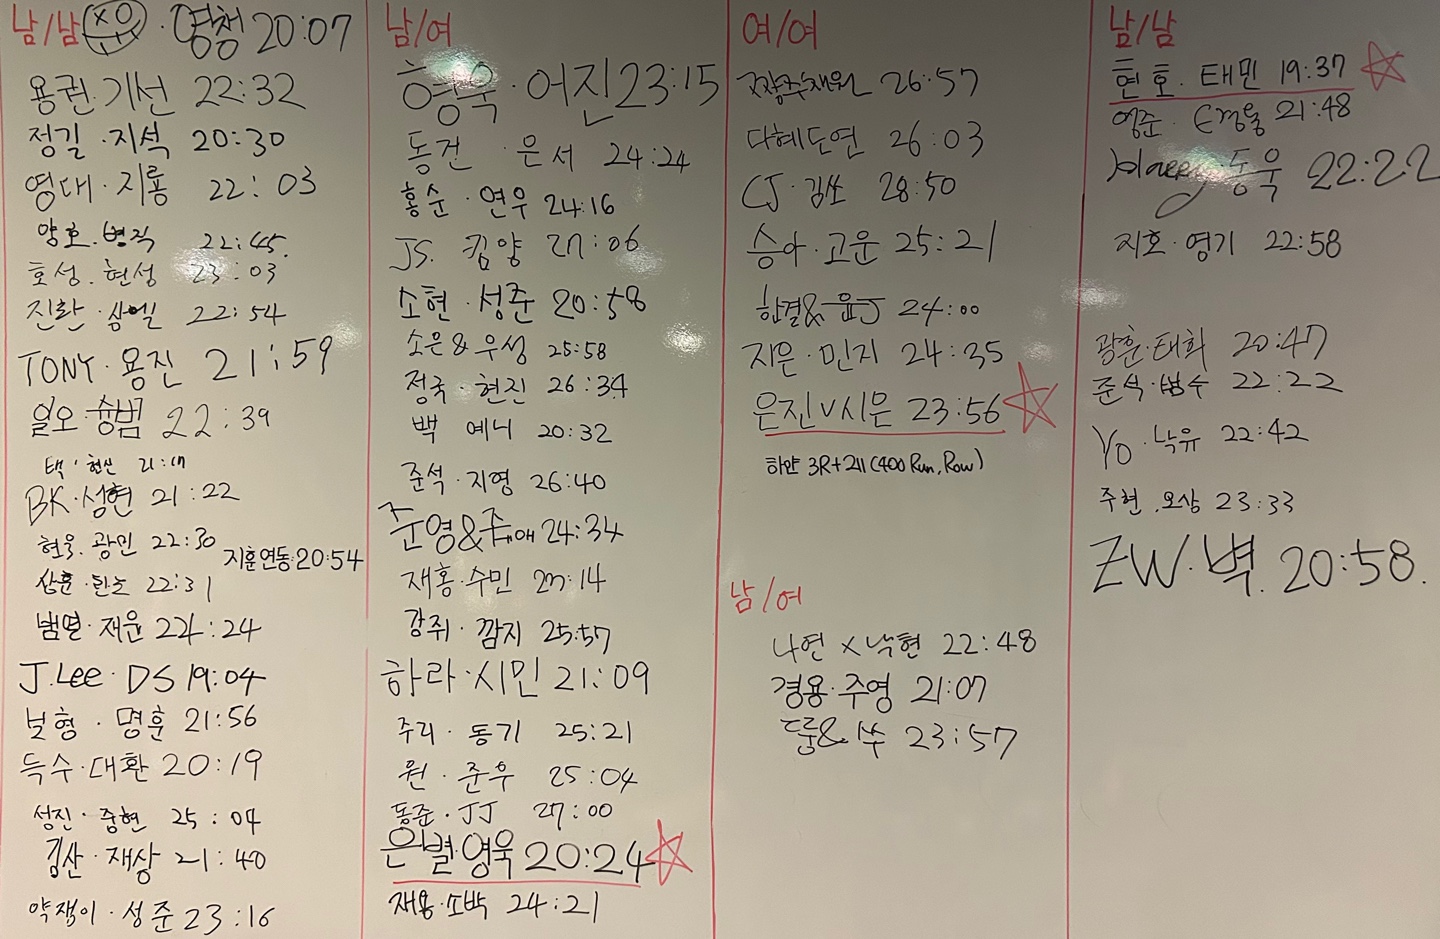 남/남 윤 · 영청 20:07
용권 · 기선 22:32
정길 · 지석 20:30
영대 · 지룡 22:03
양호 · 병직 22:45.
호성 · 현성 23:03
진란 · 삼엘 22:54
TONY · 용진 21:59
일오 · 승범 22:39
택 · 21:17
BK · 성현 21:22
현욱 · 광민 22:30
지훈 연동 20:54
상훈 · 22:31
범열 · 재윤 22:24
J.Lee · DS 19:04
보형 · 명훈 21:56
득수 · 대환 20:19
성진 · 중현 25:04
김산 · 재상 21:40
약쟁이 · 성준 23:16
남/여
형욱 · 어진 23:15
동건 · 은서 24:24
홍순 · 연우 24:16
JS. 킴양 27:06
소현 · 성준 20:58
소은 & 우성 25:58
정국 · 현진 26:34
백 예니 20:32
준석 · 지영 26:40
준영 & 24:34
재홍 · 수민 27:14
강쥐 · 깜지 25:57
하라 · 시민 21:09
주리 · 동기 25:21
원 · 준우 25:04
동준 · JJ 27:00
은별 · 영욱 20:24
재용 · 소박 24:21
여/여
짱주채원 26:57
다혜도연 26:03
CJ · 김쏘 28:50
승아 · 고운 25:21
한결 & 윤J 24:00
지은 · 민지 24:35
은진 v 시은 23:56
하얀 3R+2 (400 Run, Row)
남/여
나연 x 낙현 22:48
경용 · 주영 21:07
룸 & 쑤 23:57
남/남
현호 · 태민 19:37
영준 · 21:48
Harry 동욱 22:22
지호 · 영기 22:58
광훈 · 태희 20:47
준석 · 병수 22:22
YO · 낙유 22:42
주현 · 오상 23:33
ZW · 벽. 20:58.